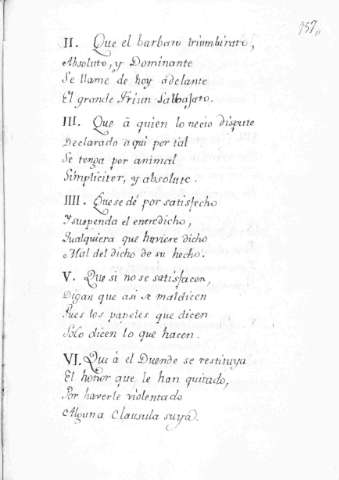 157
II. Que el barbaro triumbirato,
Absoluto, y Dominante
Se llame de hoy adelante
El grande Trium Salbajato.
III. Que â quien lo necio dispute
Declarado aqui por tal
Se tenga por animal
Simpliciter, y absolute.
IIII. Quese dé por satisfecho
Y suspenda el entredicho,
Qualquiera que huviere dicho
Mal del dicho de su hecho.
V. Que si no se satisfacen,
Digan que asi se maldicen
Pues los papeles que dicen
Solo dicen lo que hacen.
VI. Que â el Duende se restituya
El honor que le han quitado,
Por haverle violentado
Alguna Clausula suya.